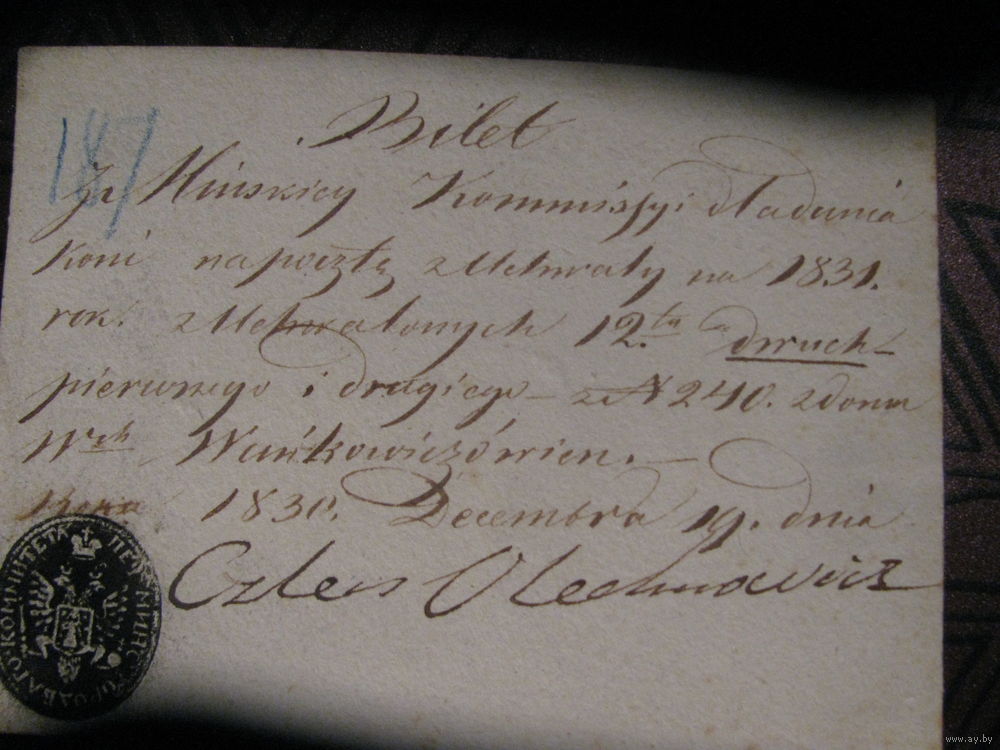 Bilet
187
Iż Mińskiey Kommissyi dladania
Koni napocztę z Uchwały na 1831.
rok. z Uchwalonych 12.tu dwuch
pierwszego i drugiego – za N 240. z domu
Wch Wańkowiczówien. –
Roku 1830. Decembra 19. dnia
Człen Olechnowicz
www.ay.by